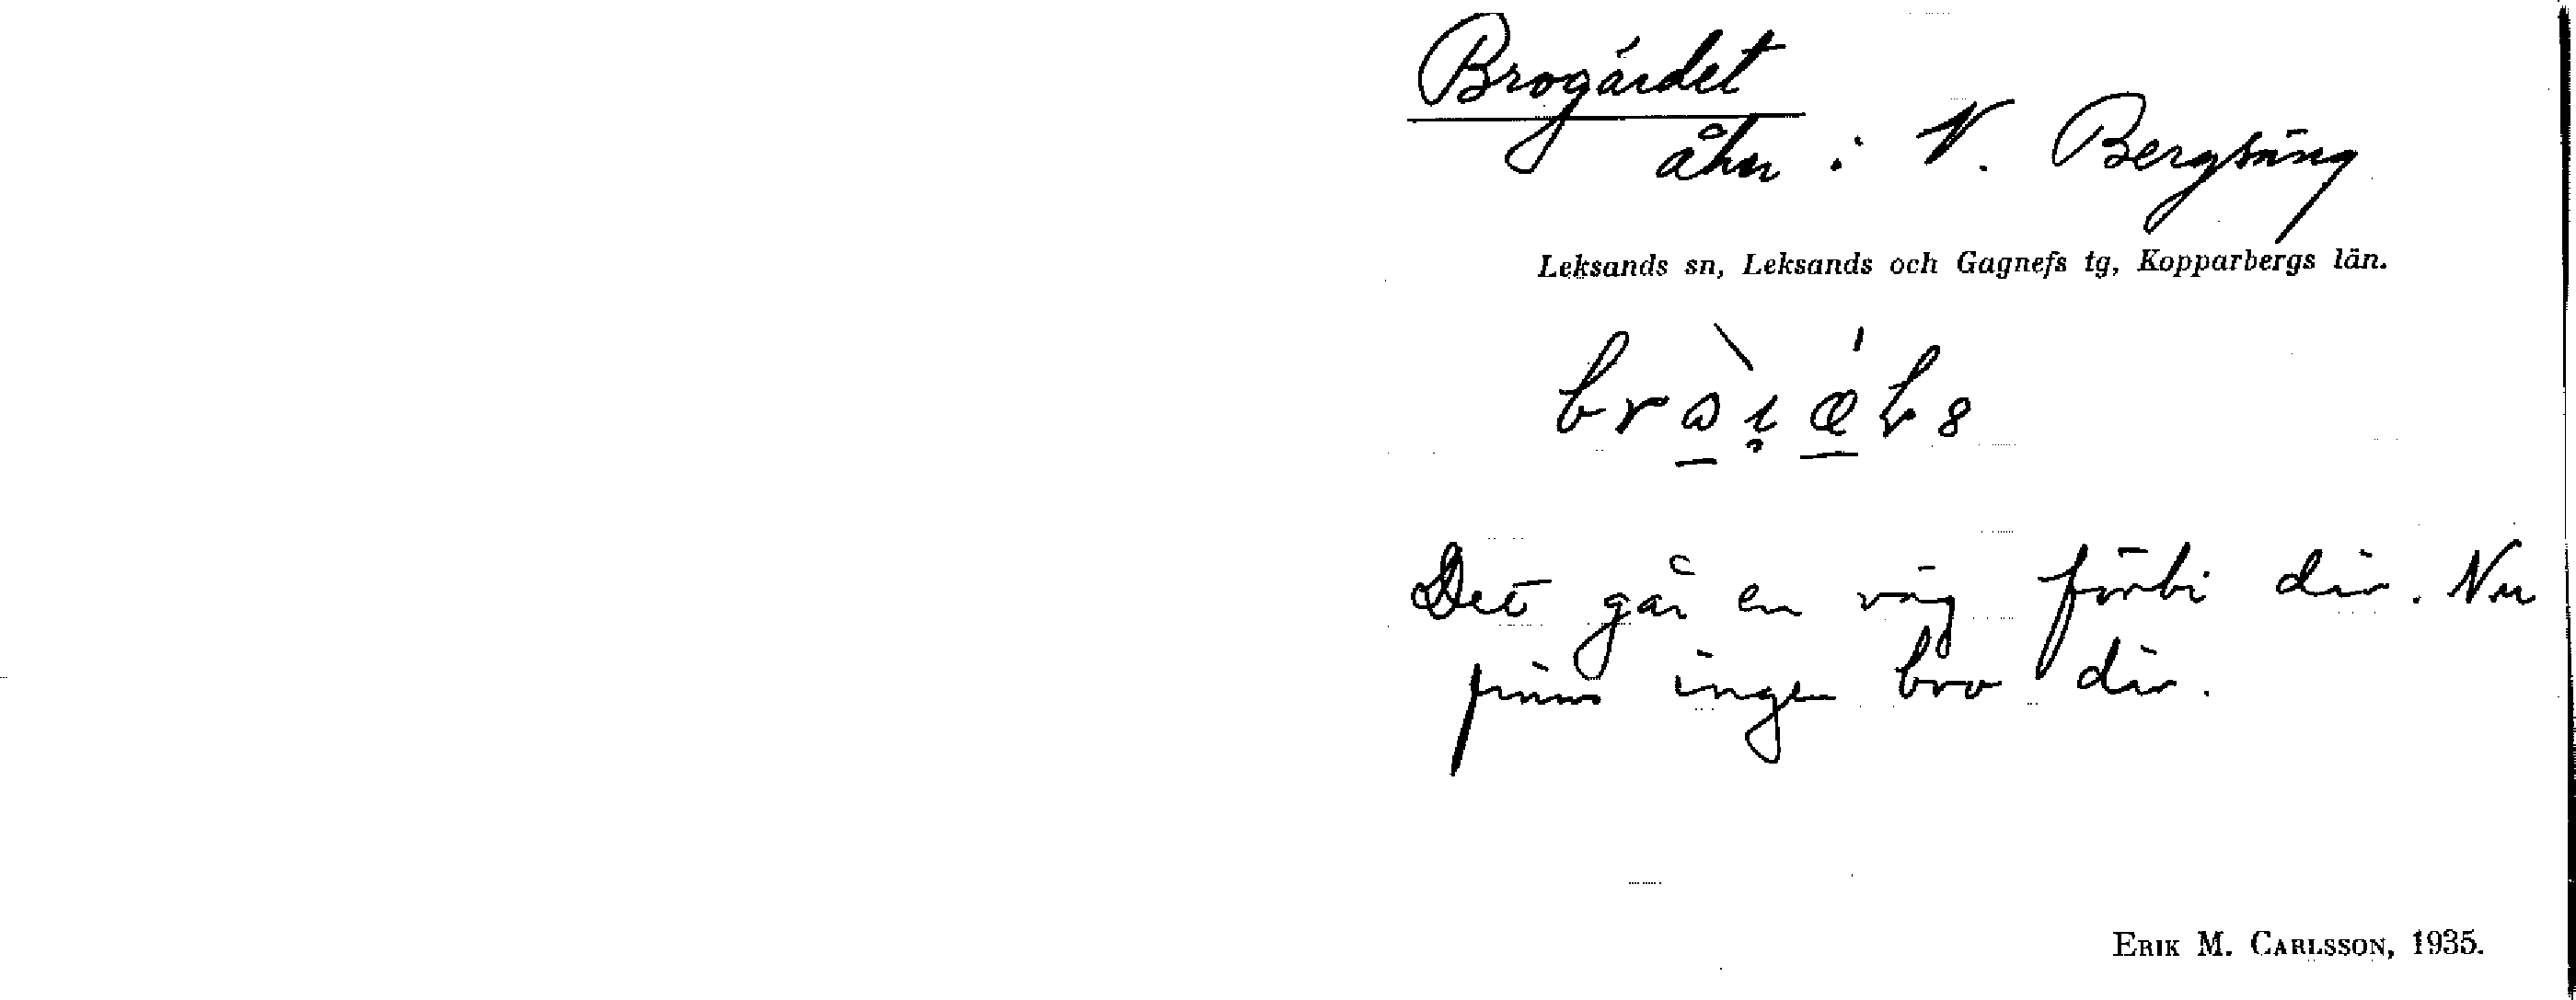 Brogärdet
åker i V. Bergsäng
Leksands sn, Leksands och Gagnefs tg, Kopparbergs län.
Det går en väg förbi där. Nu
finns ingen bro där.
ERIK M. CARLSSON, 1935.